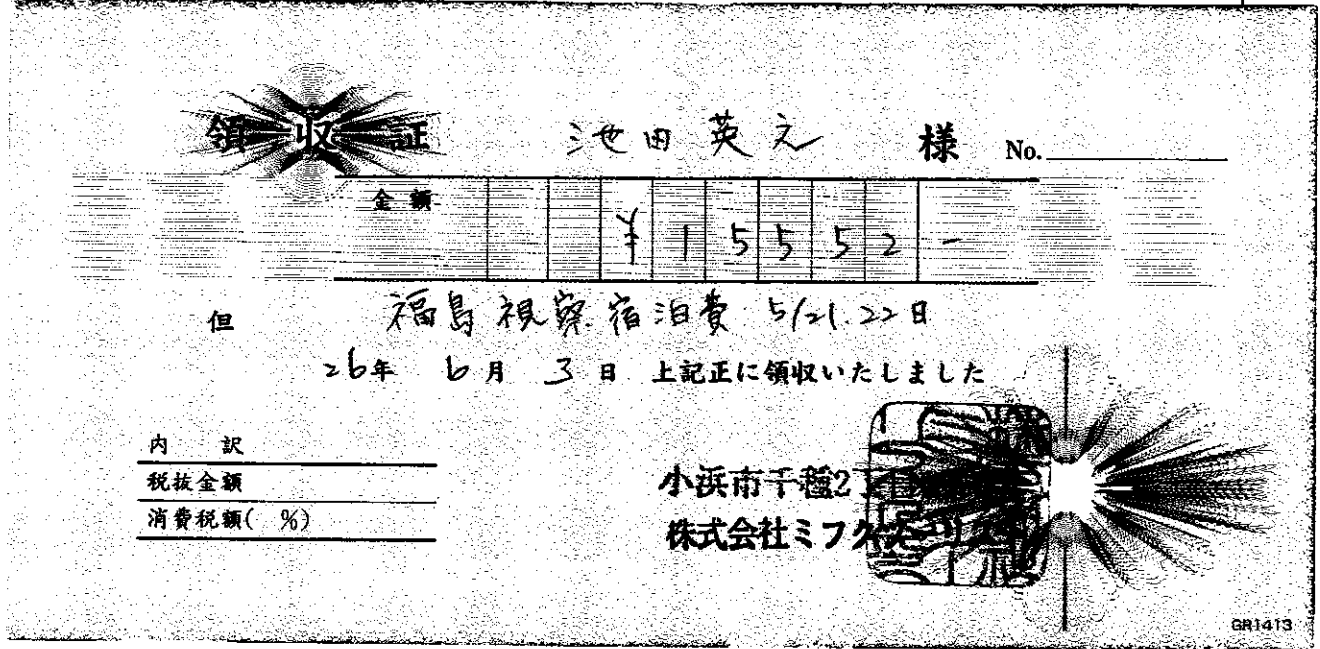 領収証 池田英之 様 No.
金額 ¥15552-
但 福島視察宿泊費 5/21.22日
26年 6月 3日 上記正に領収いたしました
内 訳
税抜金額
消費税額( %)
小浜市千種2丁目
株式会社ミフク
GR1413